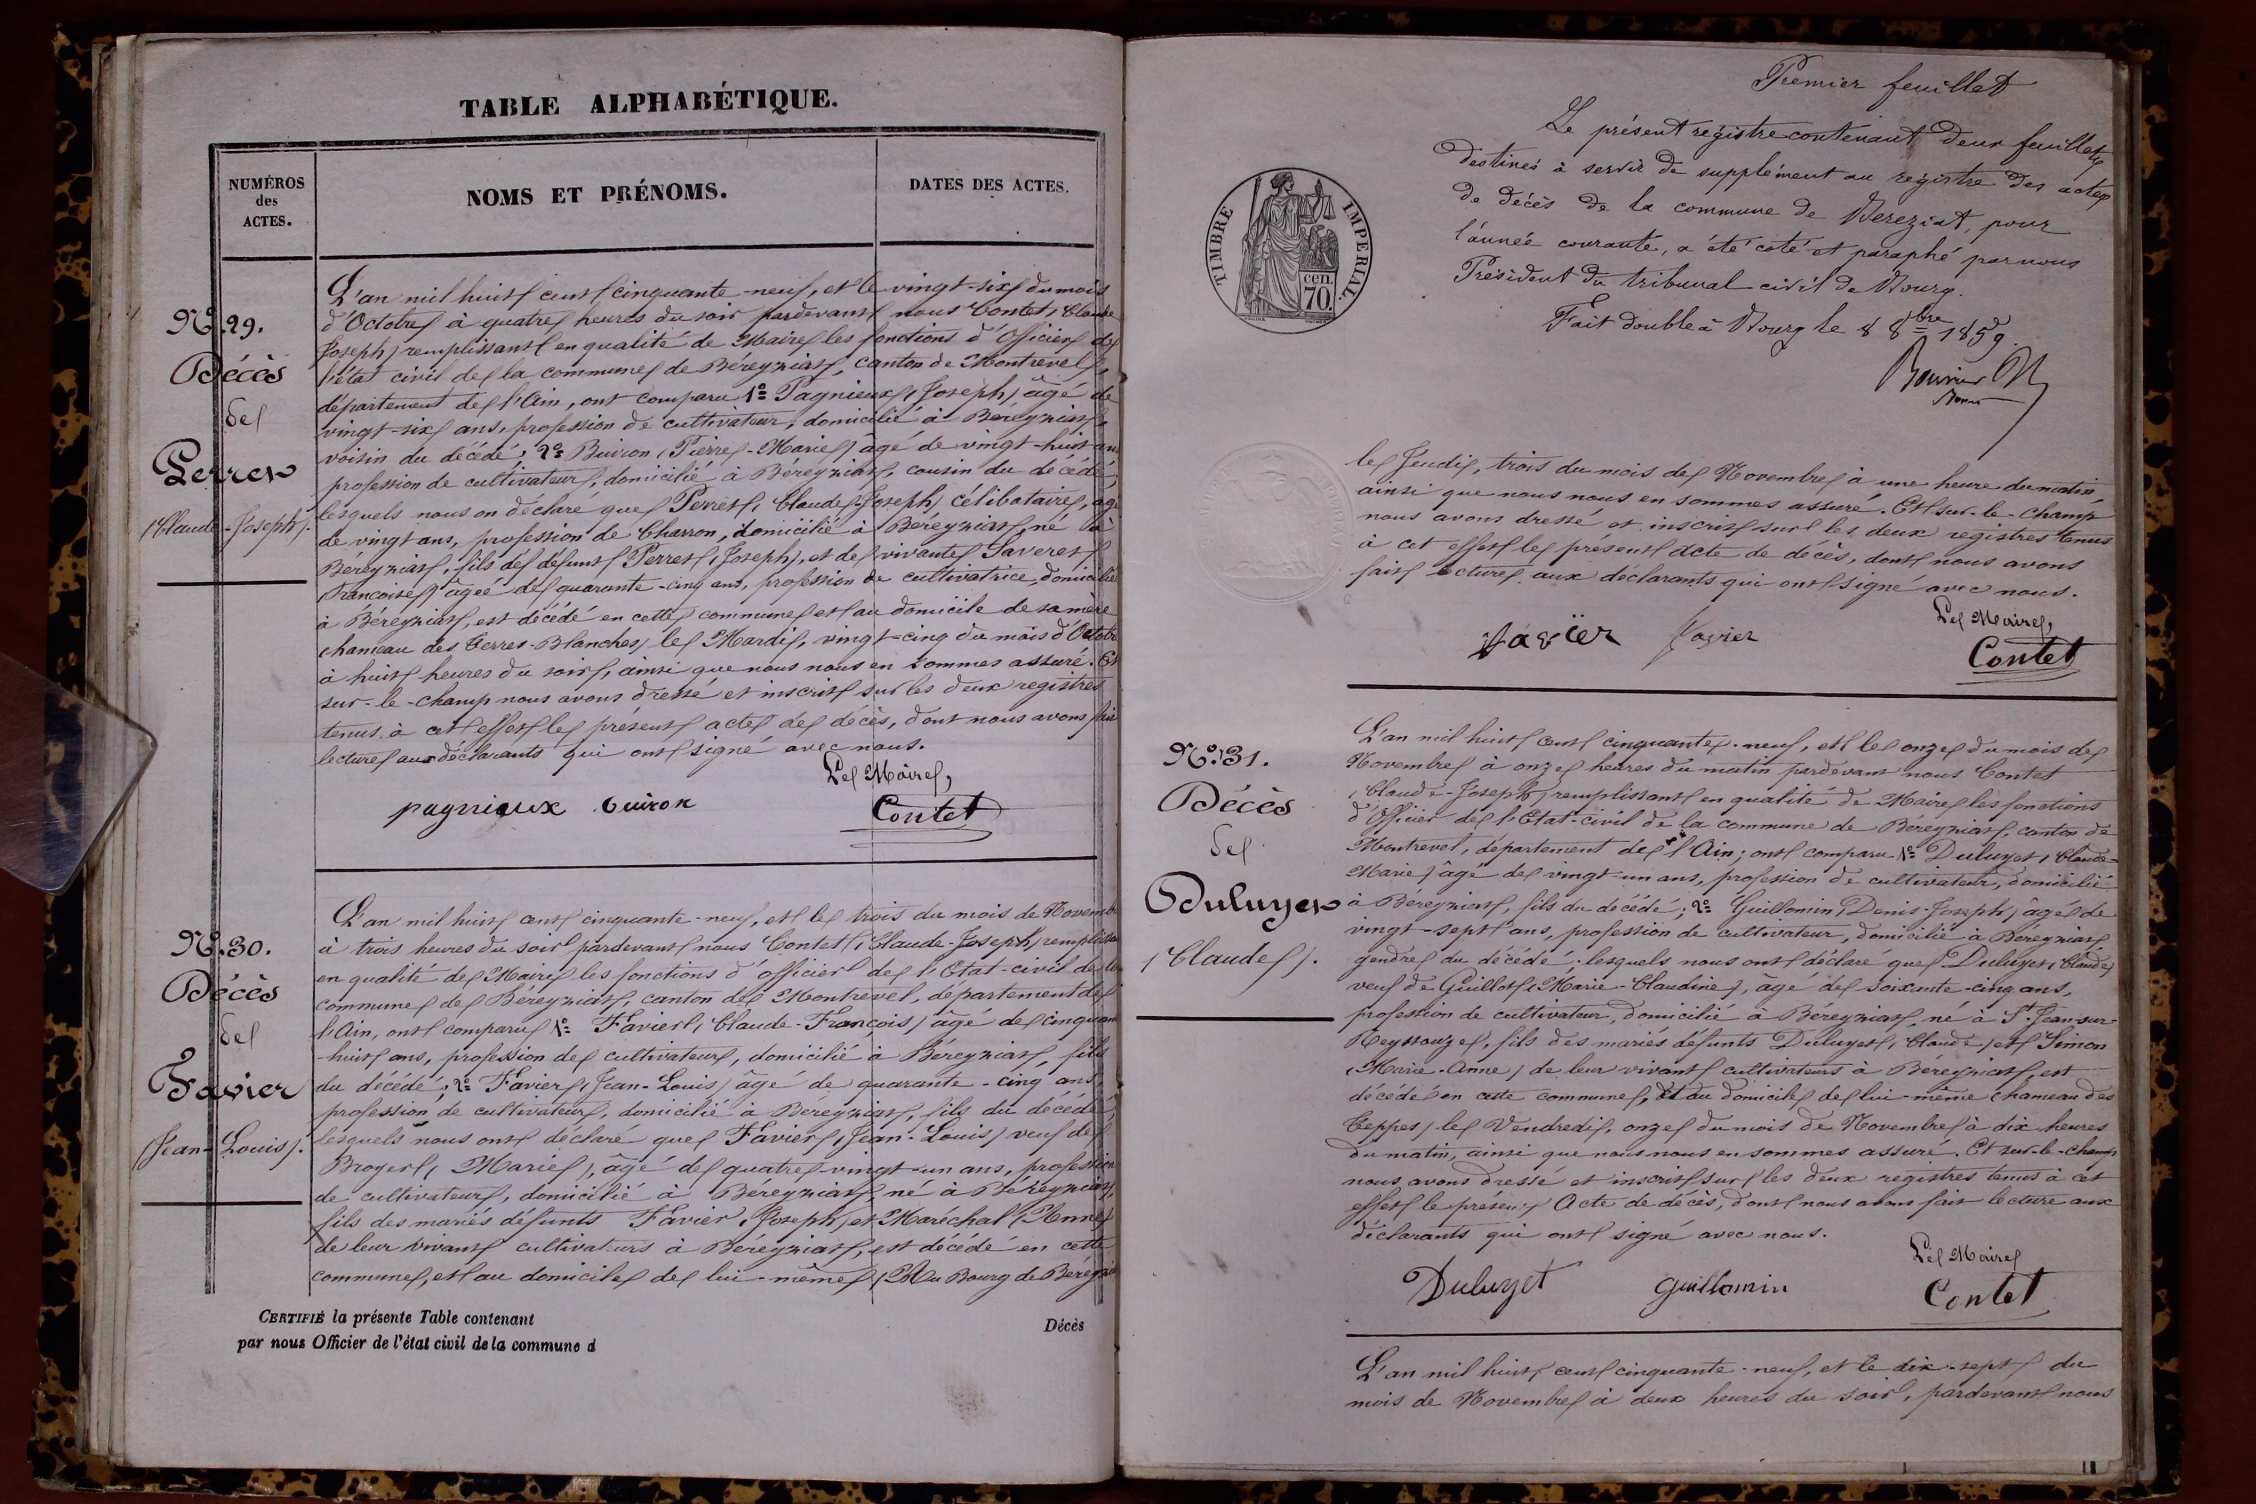 TABLE ALPHABÉTIQUE.
NUMÉROS
des
ACTES.
NOMS ET PRÉNOMS.
DATES DES ACTES.
N.º 29.
Décès
de
Perret
(Claude-Joseph).
L'an mil huit cent cinquante-neuf, et le vingt-six du mois
d'Octobre à quatre heures du soir pardevant nous Contet, Claude
Joseph) remplissant en qualité de Maire les fonctions d'Officier de
l'état civil de la commune de Béréyziat, canton de Montrevel,
département de l'Ain, ont comparu 1º Pagnieux (Joseph) âgé de
vingt-six ans, profession de cultivateur, domicilié à Béréyziat,
voisin du décédé; 2º Buiron (Pierre-Marie) âgé de vingt-huit ans
profession de cultivateur, domicilié à Béréyziat, cousin du décédé,
lesquels nous on déclaré que Perret, Claude-Joseph, célibataire, âgé
de vingt ans, profession de Charron, domicilié à Béréyziat, né à
Béréyziat, fils de défunt Perret (Joseph), et de vivante Taveret
(Francoise) âgée de quarante-cinq ans, profession de cultivatrice, domiciliée
à Béréyziat, est décédé en cette commune et au domicile de sa mère
(hameau des Terres-Blanches) le Mardi, vingt-cinq du mois d'Octobre
à huit heures du soir, ainsi que nous nous en sommes assuré. Et
sur-le-champ nous avons dressé et inscrit sur les deux registres
tenus à cet effet le présent acte de décès, dont nous avons fait
lecture aux déclarants qui ont signé avec nous.
Le Maire,
pagniaux buiron Contet
N.º 30.
Décès
de
Favier
(Jean-Louis).
L'an mil huit cent cinquante-neuf, et le trois du mois de Novembre
à trois heures du soir pardevant nous Contet (Claude-Joseph) remplissant
en qualité de Maire les fonctions d'officier de l'Etat-civil de la
commune de Béréyziat, canton de Montrevel, département de
l'Ain, ont comparu 1º Favier (Claude-Francois) âgé de cinquante
-huit ans, profession de cultivateur, domicilié à Béréyziat, fils
du décédé; 2º Favier (Jean-Louis) âgé de quarante-cinq ans,
profession de cultivateur, domicilié à Béréyziat, fils du décédé,
lesquels nous ont déclaré que Favier (Jean-Louis) veuf de
Broyer (Marie), âgé de quatre-vingt-un ans, profession
de cultivateur, domicilié à Béréyziat, né à Béréyziat,
fils des mariés défunts Favier (Joseph) et Maréchal (Anne)
de leur vivant cultivateurs à Béréyziat, est décédé en cette
commune, et au domicile de lui-même, (Au Bourg de Béréyziat
CERTIFIÉ la présente Table contenant
Décès
par nous Officier de l'état civil de la commune d
Premier feuillet
Le présent registre contenant deux feuillets
destinés à servir de supplément au registre des actes
de décès de la commune de Bereziat, pour
l'année courante, a été coté et paraphé par nous
Président du tribunal civil de Bourg.
Fait double à Bourg le 8 8bre 1859.
TIMBRE IMPERIAL.
cen.
70.
le Jeudi, trois du mois de Novembre à une heure du matin,
ainsi que nous nous en sommes assuré. Et sur-le-champ
nous avons dressé et inscrit sur les deux registres tenus
à cet effet le présent acte de décès, dont nous avons
fait lecture aux déclarants qui ont signé avec nous.
Le Maire,
favïer favier Contet
N.º 31.
Décès
de
Duluyer
(Claude).
L'an mil huit cent cinquante-neuf, et le onze du mois de
Novembre à onze heures du matin pardevant nous Contet
(Claude-Joseph) remplissant en qualité de Maire les fonctions
d'Officier de l'Etat-civil de la commune de Béréyziat, canton de
Montrevel, département de l'Ain; ont comparu 1º Duluyet (Claude-
Marie) âgé de vingt-un ans, profession de cultivateur, domicilié
à Béréyziat, fils du décédé; 2º Guillomin (Denis-Joseph) âgé de
vingt-sept ans, profession de cultivateur, domicilié à Béréyziat,
gendre du décédé; lesquels nous ont déclaré que Duluyet (Claude)
veuf de Guillot (Marie-Claudine), âgé de soixante-cinq ans,
profession de cultivateur, domicilié à Béréyziat, né à St. Jean-sur-
Reyssouze, fils des mariés défunts Duluyet (Claude) et Simon
(Marie-Anne) de leur vivant cultivateurs à Béréyziat, est
décédé en cette commune, et au domicile de lui-même (hameau des
Teppes) le Vendredi, onze du mois de Novembre à dix heures
du matin, ainsi que nous nous en sommes assuré. Et sur-le-champ
nous avons dressé et inscrit sur les deux registres tenus à cet
effet le présent Acte de décès, dont nous avons fait lecture aux
déclarants qui ont signé avec nous.
Le Maire
Duluyet guillomin Contet
L'an mil huit cent cinquante-neuf, et le dix-sept du
mois de Novembre à deux heures du soir, pardevant nous